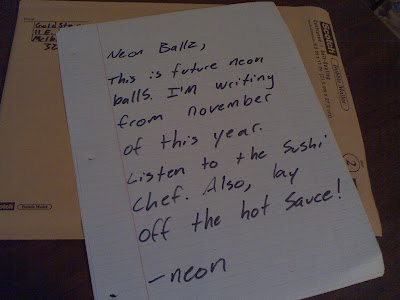 Neon Ballz,
This is future neon
balls. I'm writing
from november
of this year.
Listen to the Sushi
Chef. Also, lay
off the hot sauce!
-neon
Scotch
Bubble Mailer
2